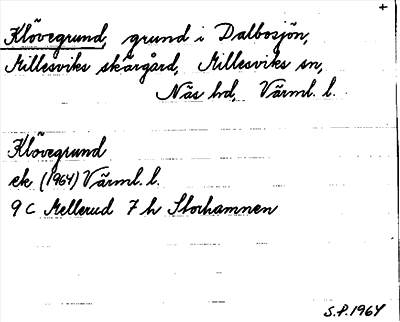 +
Klövegrund, grund i Dalbosjön,
Millesviks skärgård, Millesviks sn,
Näs hd, Värml. l.
Klövegrund
ek (1964) Värml. l.
9 C Mellerud 7 h Storhamnen
S.P. 1964